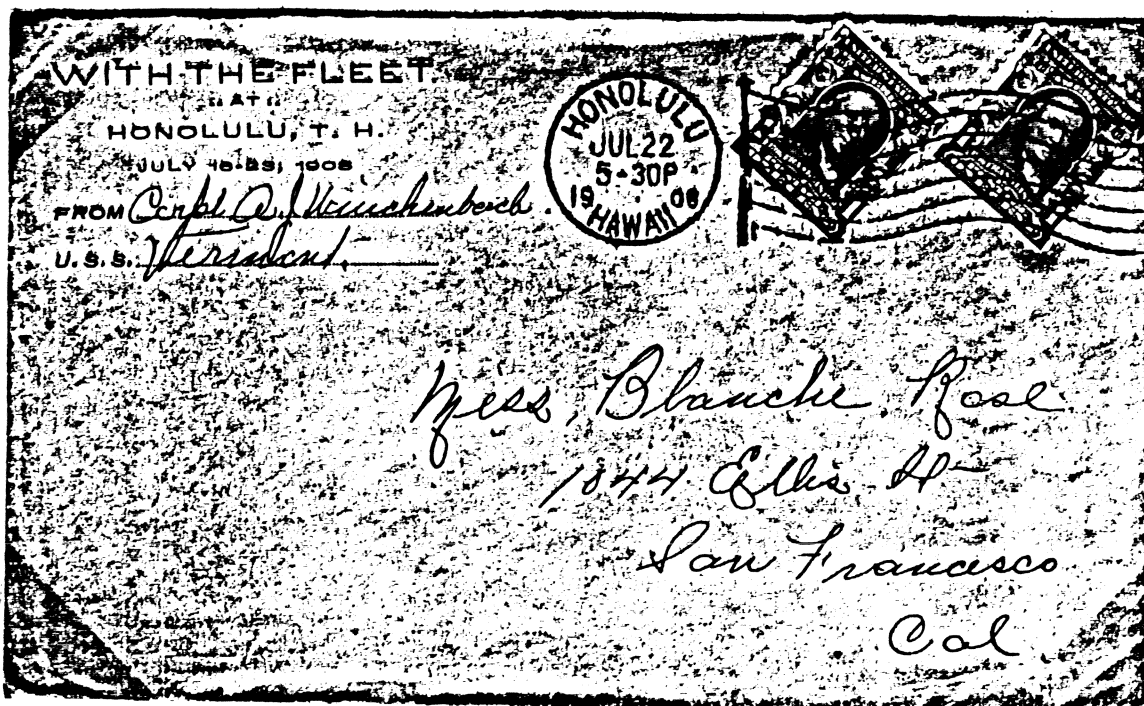 WITH THE FLEET
AT
HONOLULU, T. H.
JULY 16-23, 1908
FROM Corpl. A. J.
U. S. S. Vermont.
HONOLULU
JUL 22
5-30P
1908
HAWAII
Miss, Blanche Rose
1844 Ellis St
San Francisco
Cal